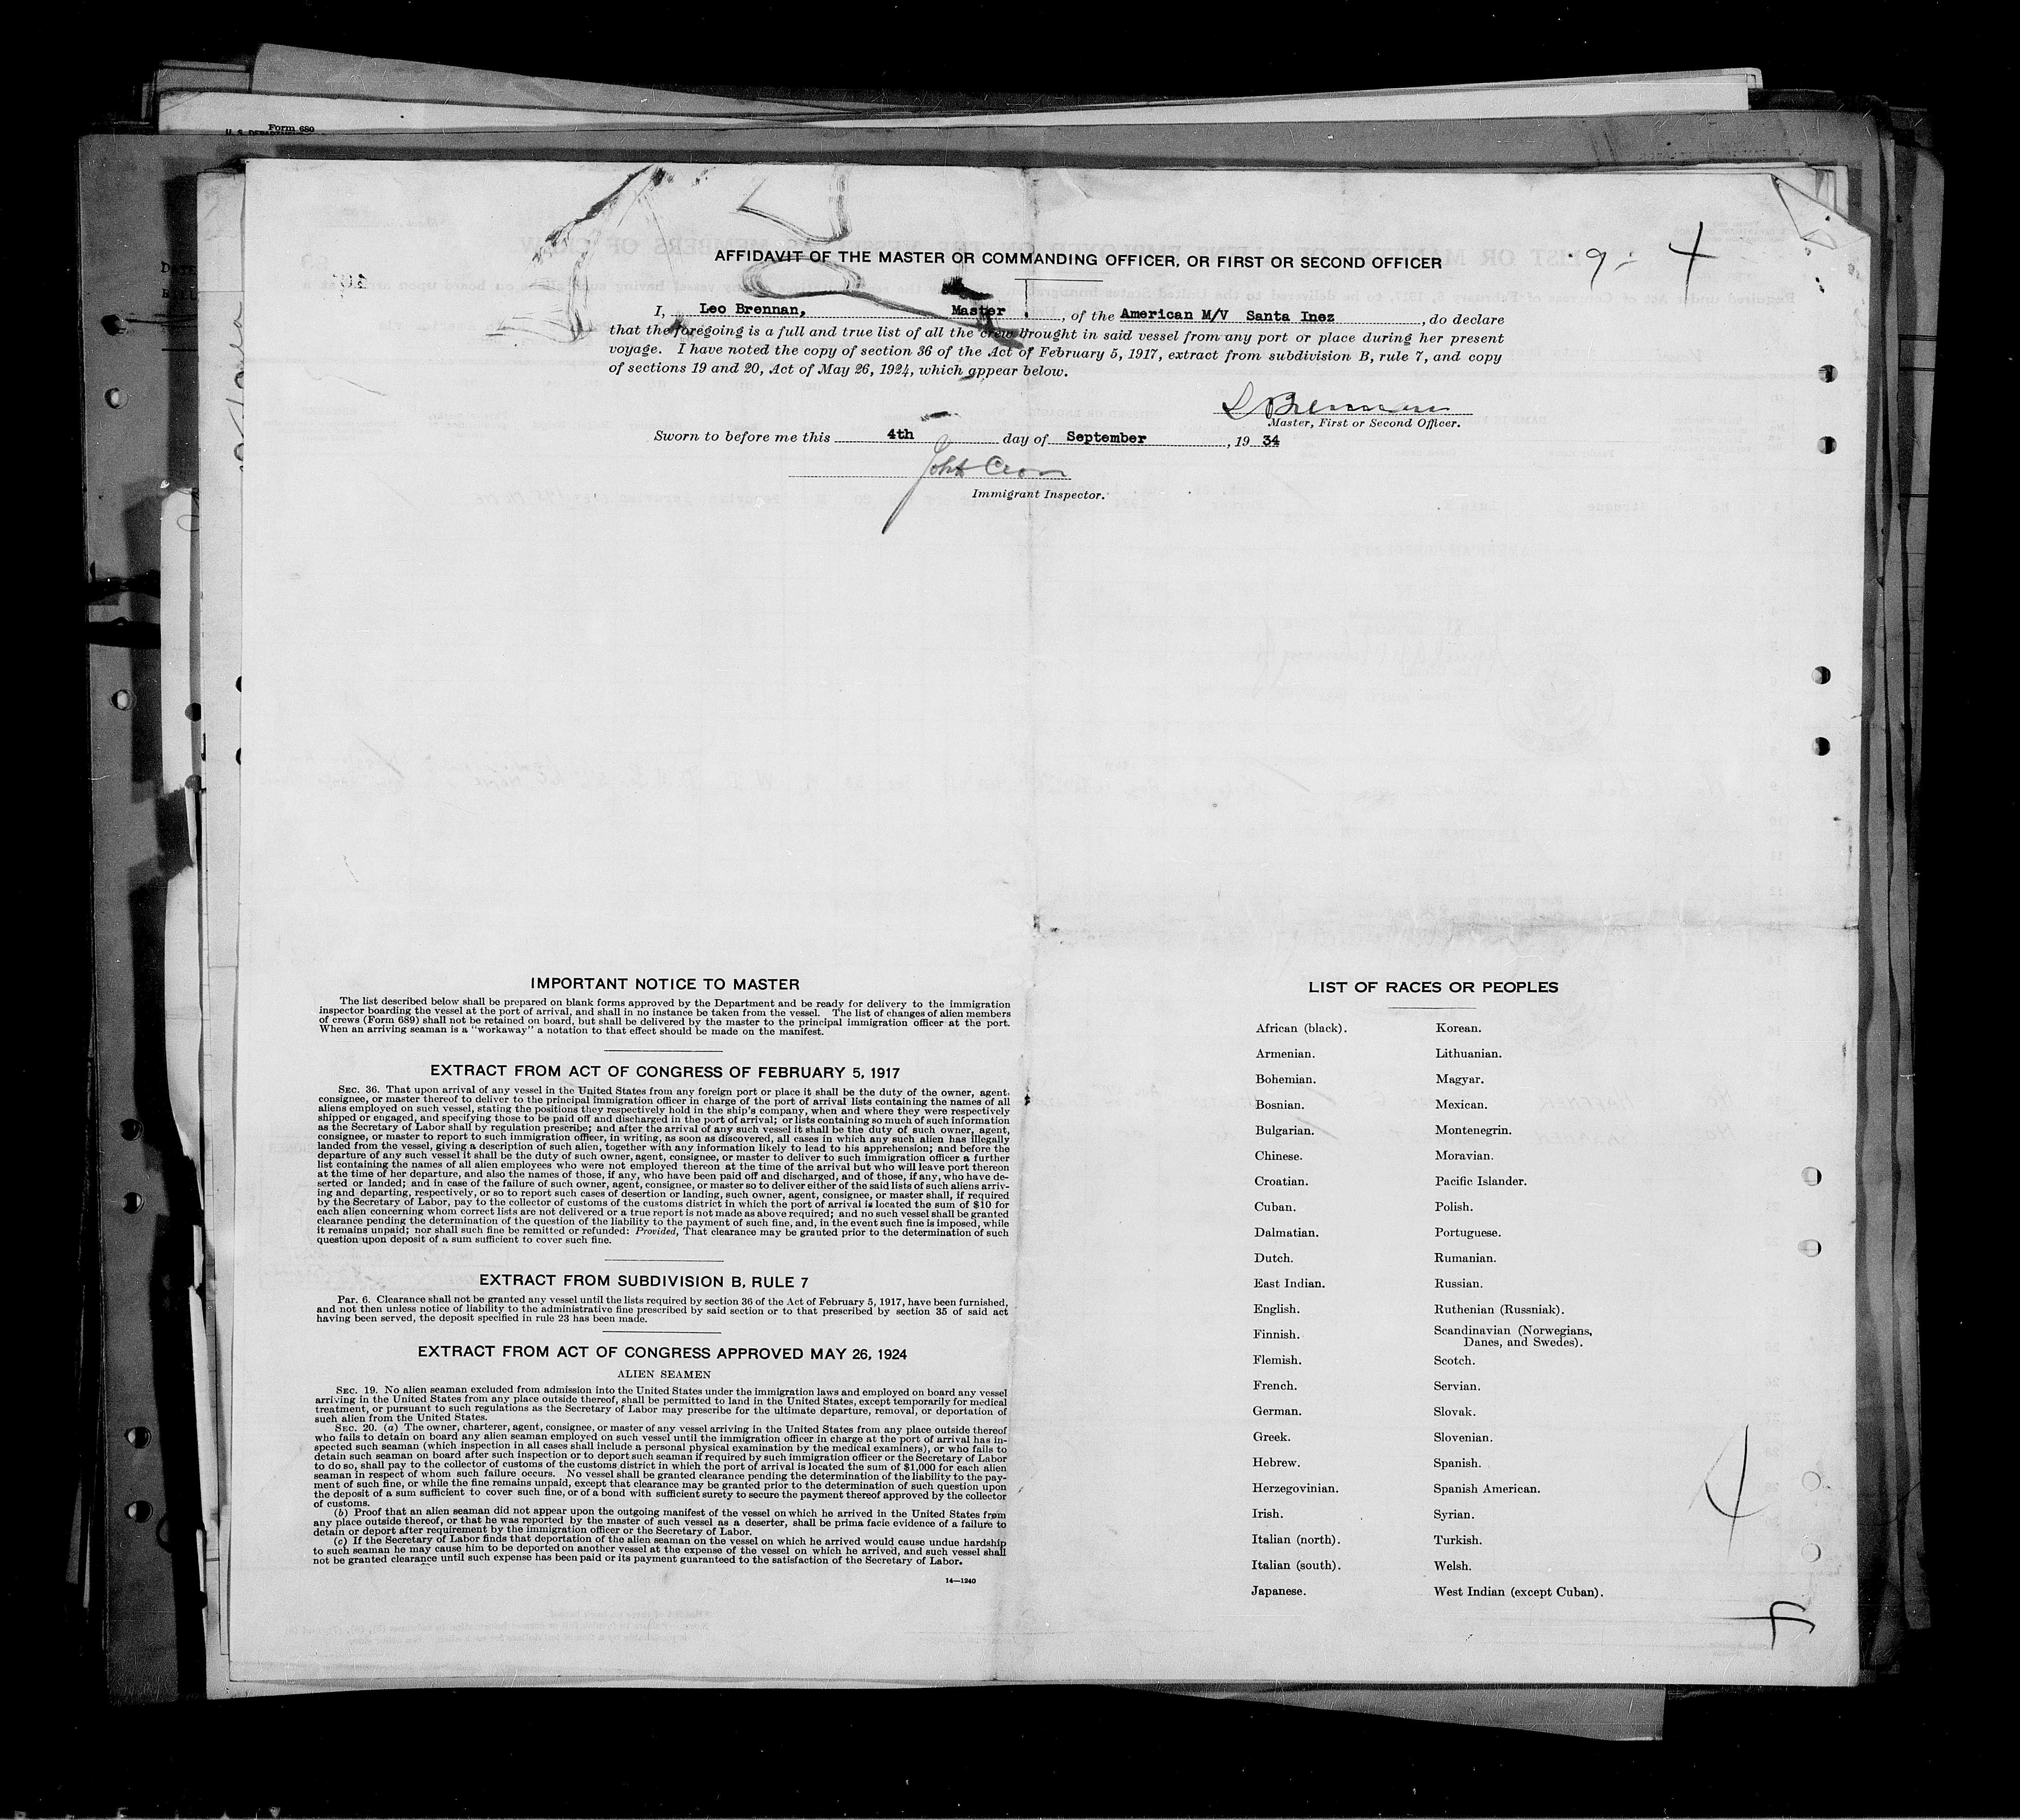 Form 680
9- 4
AFFIDAVIT OF THE MASTER OR COMMANDING OFFICER, OR FIRST OR SECOND OFFICER
I, Leo Brennan, Master, of the American M/V Santa Inez, do declare
that the foregoing is a full and true list of all the crew brought in said vessel from any port or place during her present
voyage. I have noted the copy of section 36 of the Act of February 5, 1917, extract from subdivision B, rule 7, and copy
of sections 19 and 20, Act of May 26, 1924, which appear below.
L Brennan
Master, First or Second Officer.
Sworn to before me this 4th day of September, 19 34
John
Immigrant Inspector.
IMPORTANT NOTICE TO MASTER
The list described below shall be prepared on blank forms approved by the Department and be ready for delivery to the immigration
inspector boarding the vessel at the port of arrival, and shall in no instance be taken from the vessel. The list of changes of alien members
of crews (Form 689) shall not be retained on board, but shall be delivered by the master to the principal immigration officer at the port.
When an arriving seaman is a "workaway" a notation to that effect should be made on the manifest.
EXTRACT FROM ACT OF CONGRESS OF FEBRUARY 5, 1917
SEC. 36. That upon arrival of any vessel in the United States from any foreign port or place it shall be the duty of the owner, agent,
consignee, or master thereof to deliver to the principal immigration officer in charge of the port of arrival lists containing the names of all
aliens employed on such vessel, stating the positions they respectively hold in the ship's company, when and where they were respectively
shipped or engaged, and specifying those to be paid off and discharged in the port of arrival; or lists containing so much of such information
as the Secretary of Labor shall by regulation prescribe; and after the arrival of any such vessel it shall be the duty of such owner, agent,
consignee, or master to report to such immigration officer, in writing, as soon as discovered, all cases in which any such alien has illegally
landed from the vessel, giving a description of such alien, together with any information likely to lead to his apprehension; and before the
departure of any such vessel it shall be the duty of such owner, agent, consignee, or master to deliver to such immigration officer a further
list containing the names of all alien employees who were not employed thereon at the time of the arrival but who will leave port thereon
at the time of her departure, and also the names of those, if any, who have been paid off and discharged, and of those, if any, who have de-
serted or landed; and in case of the failure of such owner, agent, consignee, or master so to deliver either of the said lists of such aliens arriv-
ing and departing, respectively, or so to report such cases of desertion or landing, such owner, agent, consignee, or master shall, if required
by the Secretary of Labor, pay to the collector of customs of the customs district in which the port of arrival is located the sum of $10 for
each alien concerning whom correct lists are not delivered or a true report is not made as above required; and no such vessel shall be granted
clearance pending the determination of the question of the liability to the payment of such fine, and, in the event such fine is imposed, while
it remains unpaid; nor shall such fine be remitted or refunded: Provided, That clearance may be granted prior to the determination of such
question upon deposit of a sum sufficient to cover such fine.
EXTRACT FROM SUBDIVISION B, RULE 7
Par. 6. Clearance shall not be granted any vessel until the lists required by section 36 of the Act of February 5, 1917, have been furnished,
and not then unless notice of liability to the administrative fine prescribed by said section or to that prescribed by section 35 of said act
having been served, the deposit specified in rule 23 has been made.
EXTRACT FROM ACT OF CONGRESS APPROVED MAY 26, 1924
ALIEN SEAMEN
SEC. 19. No alien seaman excluded from admission into the United States under the immigration laws and employed on board any vessel
arriving in the United States from any place outside thereof, shall be permitted to land in the United States, except temporarily for medical
treatment, or pursuant to such regulations as the Secretary of Labor may prescribe for the ultimate departure, removal, or deportation of
such alien from the United States.
SEC. 20. (a) The owner, charterer, agent, consignee, or master of any vessel arriving in the United States from any place outside thereof
who fails to detain on board any alien seaman employed on such vessel until the immigration officer in charge at the port of arrival has in-
spected such seaman (which inspection in all cases shall include a personal physical examination by the medical examiners), or who fails to
detain such seaman on board after such inspection or to deport such seaman if required by such immigration officer or the Secretary of Labor
to do so, shall pay to the collector of customs of the customs district in which the port of arrival is located the sum of $1,000 for each alien
seaman in respect of whom such failure occurs. No vessel shall be granted clearance pending the determination of the liability to the pay-
ment of such fine, or while the fine remains unpaid, except that clearance may be granted prior to the determination of such question upon
the deposit of a sum sufficient to cover such fine, or of a bond with sufficient surety to secure the payment thereof approved by the collector
of customs.
(b) Proof that an alien seaman did not appear upon the outgoing manifest of the vessel on which he arrived in the United States from
any place outside thereof, or that he was reported by the master of such vessel as a deserter, shall be prima facie evidence of a failure to
detain or deport after requirement by the immigration officer or the Secretary of Labor.
(c) If the Secretary of Labor finds that deportation of the alien seaman on the vessel on which he arrived would cause undue hardship
to such seaman he may cause him to be deported on another vessel at the expense of the vessel on which he arrived, and such vessel shall
not be granted clearance until such expense has been paid or its payment guaranteed to the satisfaction of the Secretary of Labor.
14—1240
LIST OF RACES OR PEOPLES
African (black). Korean.
Armenian. Lithuanian.
Bohemian. Magyar.
Bosnian. Mexican.
Bulgarian. Montenegrin.
Chinese. Moravian.
Croatian. Pacific Islander.
Cuban. Polish.
Dalmatian. Portuguese.
Dutch. Rumanian.
East Indian. Russian.
English. Ruthenian (Russniak).
Finnish. Scandinavian (Norwegians,
Danes, and Swedes).
Flemish. Scotch.
French. Servian.
German. Slovak.
Greek. Slovenian.
Hebrew. Spanish.
Herzegovinian. Spanish American.
Irish. Syrian.
Italian (north). Turkish.
Italian (south). Welsh.
Japanese. West Indian (except Cuban).